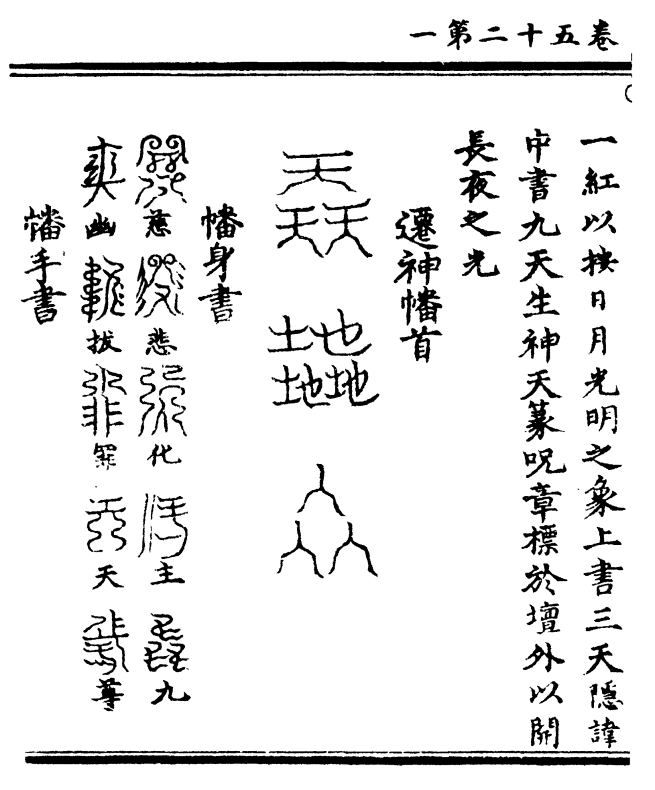 卷五十二第一
一紅以按日月光明之象上書三天隱諱
中書九天生神天篆呪章標於壇外以開
長夜之光
遷神幡首
天
天天
地
地地
人
人人
幡身書
慈悲化主九
幽拔罪天尊
幡手書